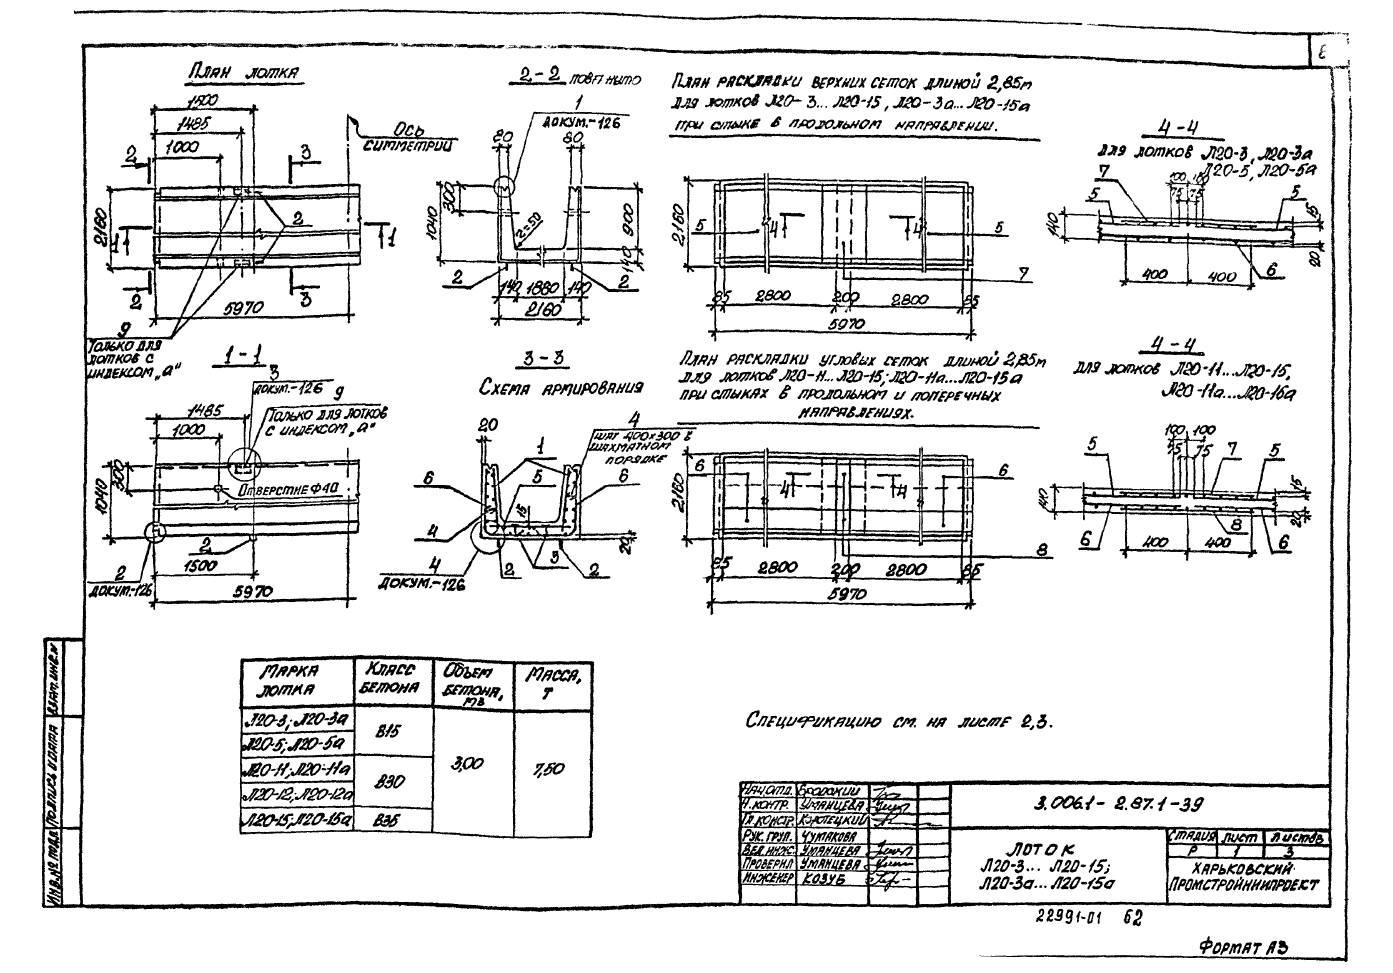 План лотка
1500
1485
1000
Ось
симметрии
2
3
2160
1
2
1
2
3
5970
9
Только для
лотков с
индексом „а"
2-2 повёрнуто
1
докум.-126
80
80
300
1040
r=50
900
140
2
2
140
1880
140
2160
План раскладки верхних сеток длиной 2,85м
для лотков Л20-3...Л20-15, Л20-3а...Л20-15а
при стыке в продольном направлении.
2160
5
4
4
5
7
85
2800
200
2800
85
5970
4-4
для лотков Л20-3, Л20-3а
Л20-5, Л20-5а
7
5
100
75
75
5
140
20
6
400
400
1-1
3
докум.-126
9
Только для лотков
с индексом „а"
1485
1000
300
1040
Отверстие Ф40
2
2
докум.-126
1500
5970
3-3
Схема армирования
4
шаг 400х300 в
шахматном
порядке
20
1
6
5
6
15
4
20
4
докум.-126
2
3
2
План раскладки угловых сеток длиной 2,85м
для лотков Л20-11...Л20-15; Л20-11а...Л20-15а
при стыках в продольном и поперечных
направлениях.
6
4
4
6
2160
8
85
2800
200
2800
85
5970
4-4
для лотков Л20-11...Л20-15,
Л20-11а...Л20-16а
100
100
75
75
5
7
5
15
140
20
6
8
6
400
400
Марка лотка
Класс бетона
Объем бетона, м3
Масса, т
Л20-3; Л20-3а
В15
Л20-5; Л20-5а
Л20-11; Л20-11а
В30
3,00
7,50
Л20-12; Л20-12а
Л20-15; Л20-15а
В35
Спецификацию см. на листе 2,3.
Нач.отд. Бродский
Н.контр. Уманцева
Гл.констр.
Рук.груп. Чумакова
Вед.инж. Уманцева
Проверил Уманцева
Инженер Козуб
3.006.1-2.87.1-39
Лоток
Л20-3...Л20-15;
Л20-3а...Л20-15а
Стадия Лист Листов
Р 1 3
Харьковский
Промстройниипроект
Взам.инв.№
Подпись и дата
Инв.№ подл.
22991-01 62
Формат А3